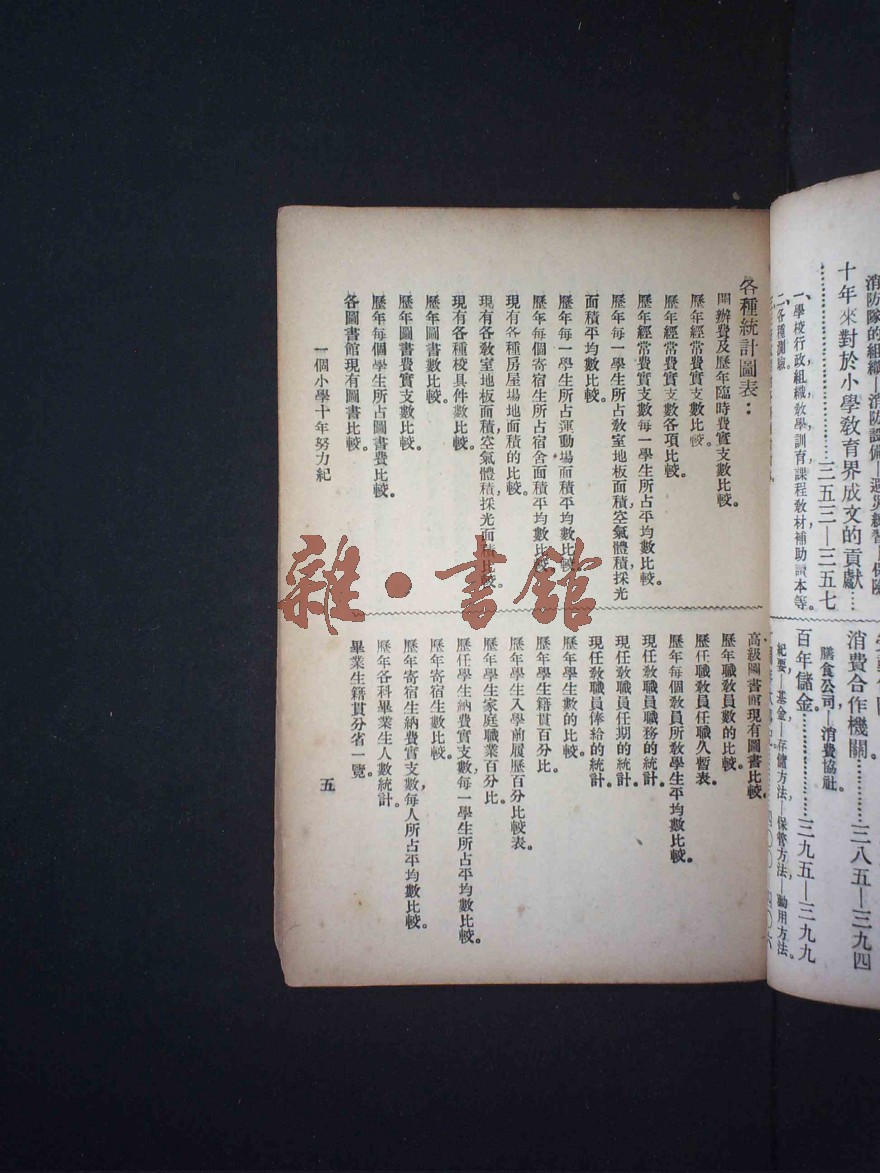 消防隊的組織—消防設備—避災練習—保險
十年來對於小學教育界成文的貢獻……
……………………三五三—三五七
一、學校行政組織,教學訓育課程教材補助讀本等。
二、各種測驗。
消費合作機關…………三八五—三九四
膳食公司—消費協社。
百年儲金。…………三九五—三九九
紀要—基金—存儲方法—保管方法—動用方法。
各種統計圖表:
開辦費及歷年臨時費實支數比較。
歷年經常費實支數比較。
歷年經常費實支數各項比較。
歷年經常費實支數每一學生所占平均數比較。
歷年每一學生所占教室地板面積,空氣體積,採光
面積平均數比較。
歷年每一學生所占運動場面積平均數比較。
歷年每個寄宿生所占宿舍面積平均數比較。
現有各種房屋場地面積的比較。
現有各教室地板面積,空氣體積,採光面積比較。
現有各種校具件數比較。
歷年圖書數比較。
歷年圖書費實支數比較。
歷年每個學生所占圖書費比較。
各圖書館現有圖書比較。
高級圖書館現有圖書比較。
歷年職教員數的比較。
歷任職教員任職久暫表。
歷年每個教員所教學生平均數比較。
現任教職員職務的統計。
現任教職員任期的統計。
現任教職員俸給的統計。
歷年學生數的比較。
歷年學生籍貫百分比。
歷年學生入學前履歷百分比較表。
歷年學生家庭職業百分比。
歷任學生納費實支數,每一學生所占平均數比較。
歷年寄宿生數比較。
歷年寄宿生納費實支數,每人所占平均數比較。
歷年各科畢業生人數統計。
畢業生籍貫分省一覽。
一個小學十年努力紀
五
雜·書館